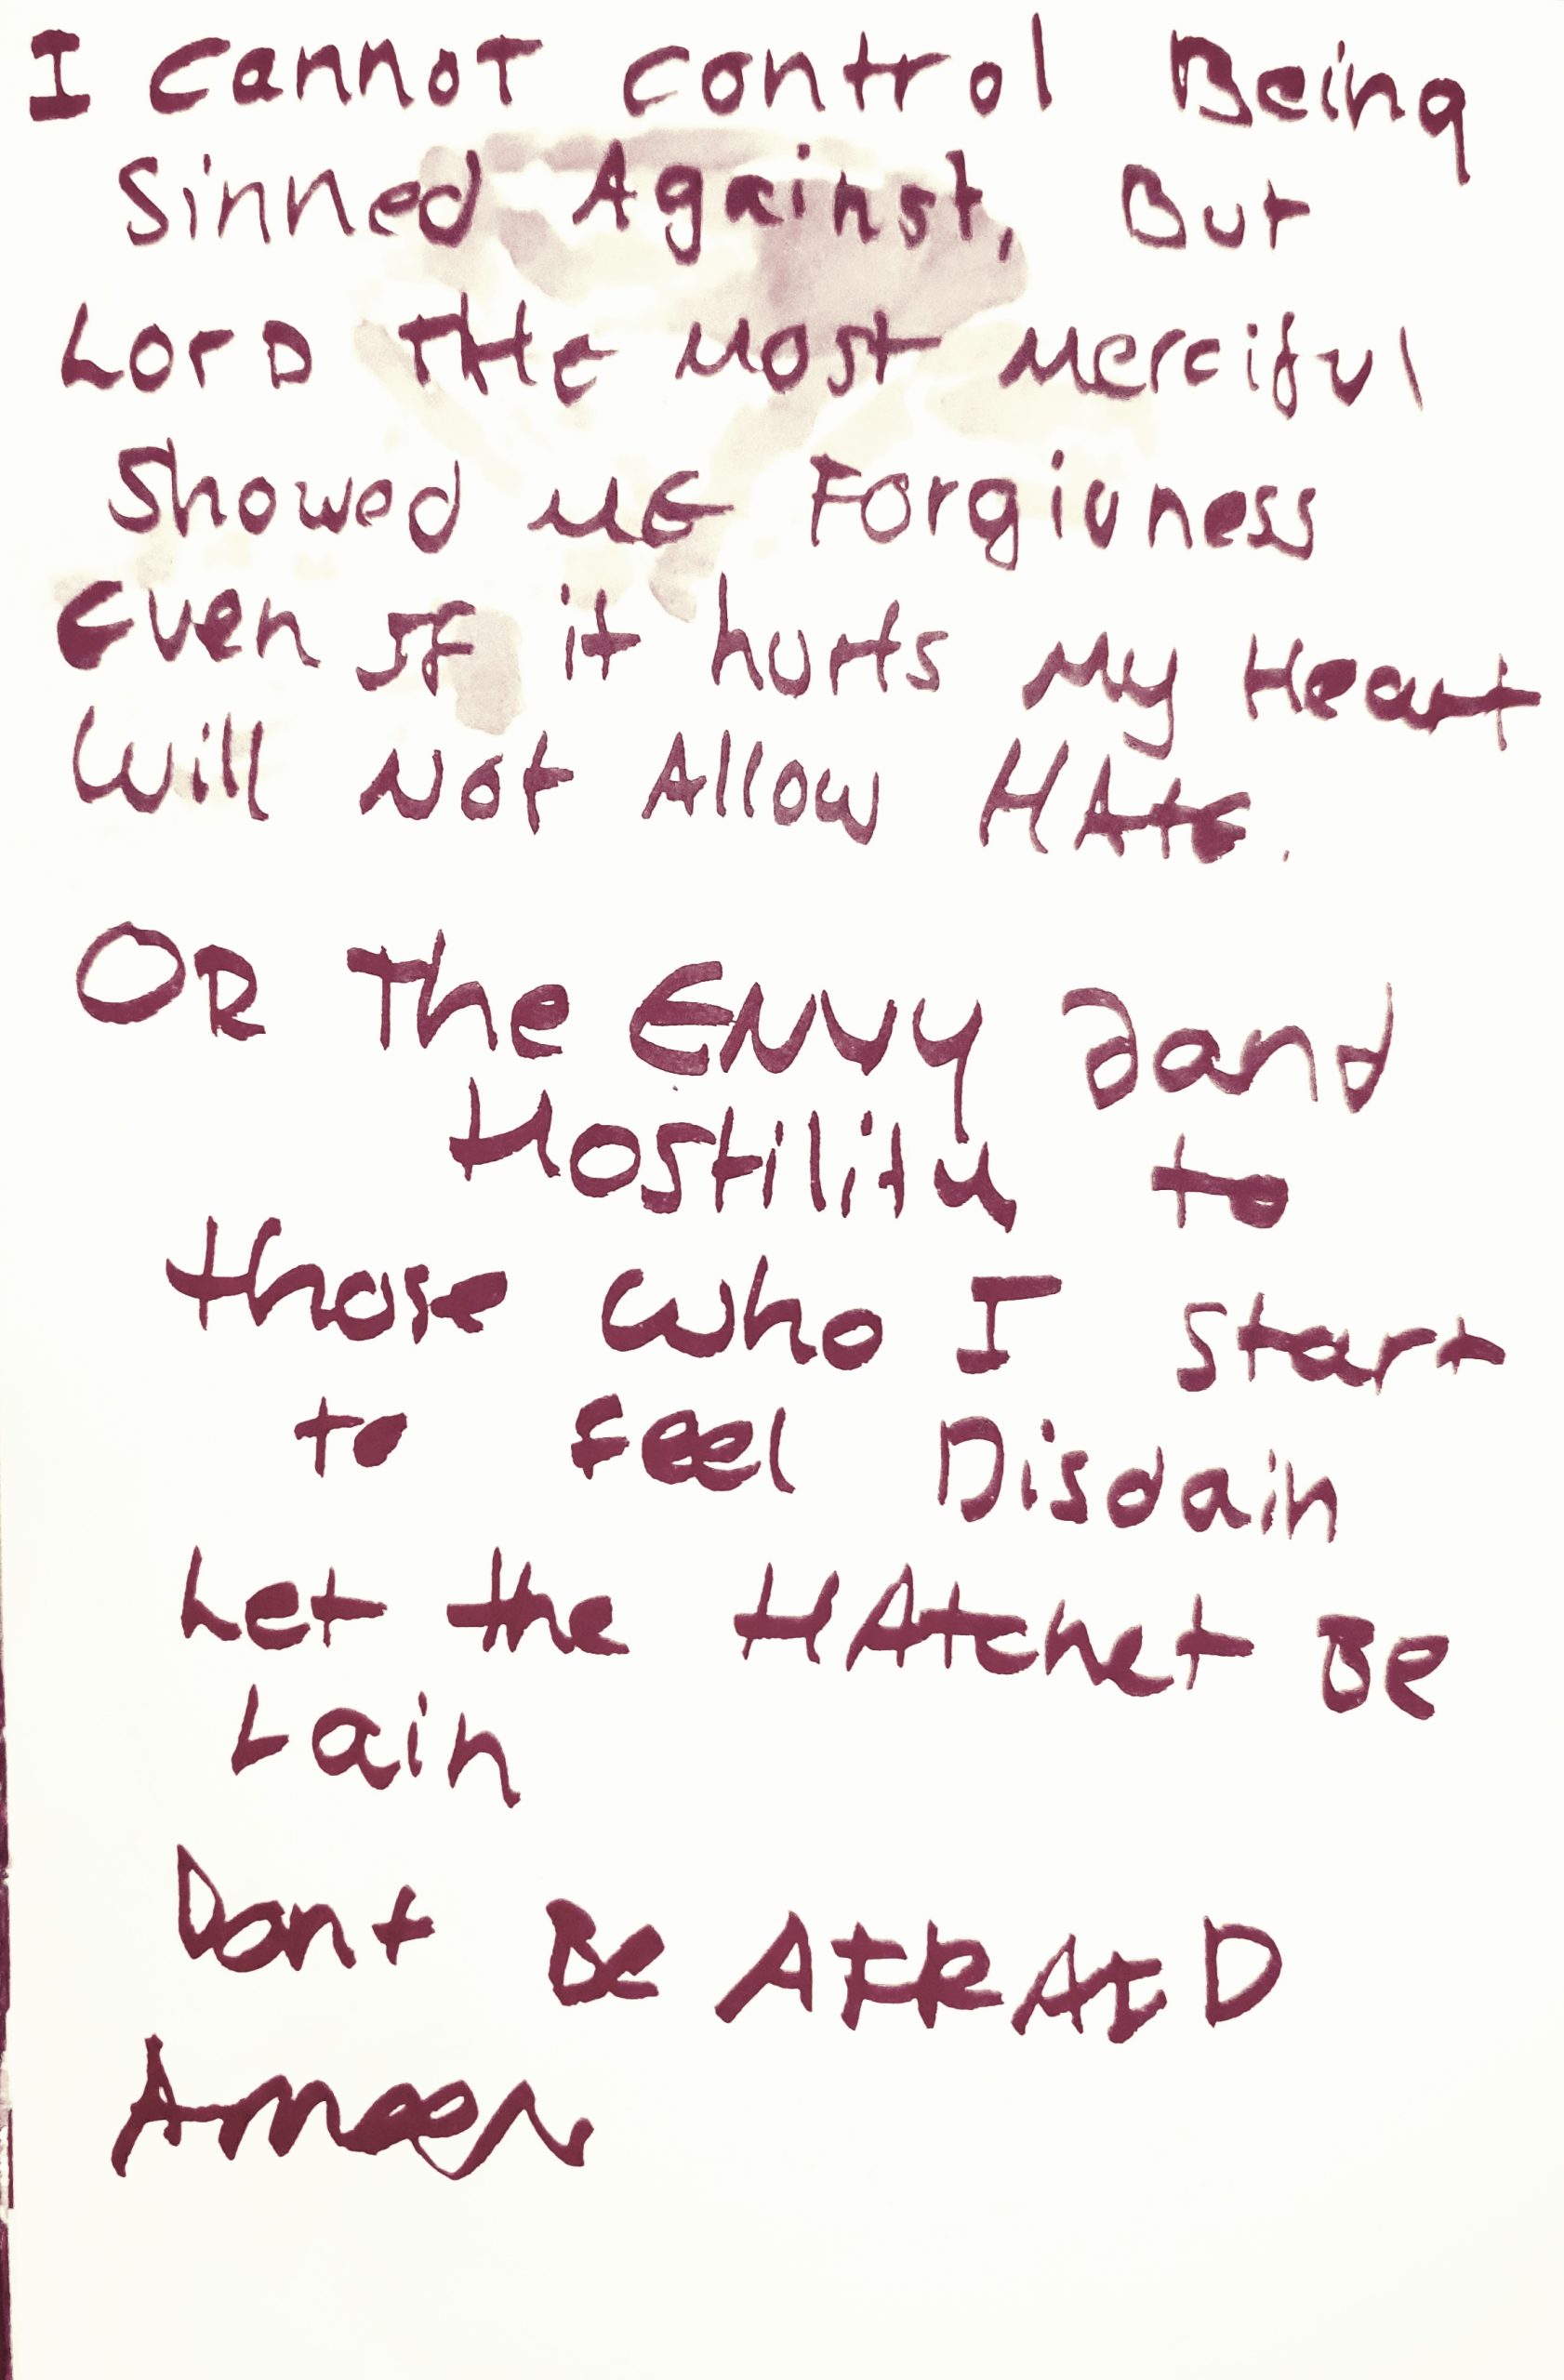 I cannot control Being
Sinned Against, But
Lord THE Most Merciful
Showed ME Forgivness
Even IF it hurts My Heart
Will Not Allow HATE.
OR The ENVY aand
Hostility to
those who I start
to Feel Disdain
Let the HAtchet Be
Lain
Dont Be AFRAID
Ameen